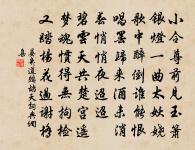 小令尊前見玉簫
銀燈一曲太妖嬈
歌中醉倒誰能恨
唱罷歸來酒未消
春悄悄夜迢迢
碧雲天共楚宮遙
夢魂慣得無拘檢
又踏楊花過謝橋
晏幾道鷓鴣天詞
集